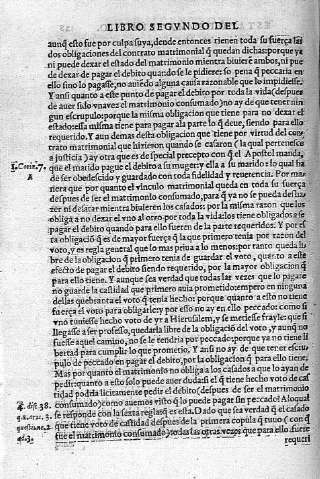 LIBRO SEGVNDO DEL
aunq̃ esto fue por culpa suya, desde entonces tienen toda su fuerça las
dos obligaciones del contrato matrimonial q̃ quedan dichas: porque ya
ni puede dexar el estado del matrimonio mientra biuierẽ ambos, ni puede
de dexar de pagar el debito quando se le pidiere: so pena q̃ peccaria en
ello sino lo pagasse, no auiẽdo alguna causa razonable que lo impidiesse.
Y ansi quanto a este punto de pagar el debito por toda la vida (despues
de auer sido vna vez el matrimonio consumado) no ay de que tener nin
gun escrupulo: porque la misma obligacion que tiene para no dexar el
estado: essa misma tiene para pagar a la parte lo q̃ deue, siendo para ello
requerido. Y aun demas desta obligacion que tiene por virtud del con-
trato matrimonial que hizieron quando se casaron (la qual pertenesce
a justicia) ay otra que es de special precepto con q̃ el Apostol manda,
1. Corin. 7. que el marido pague el debito a su muger y ella a su marido: lo qual ha
A de ser obedescido y guardado con toda fidelidad y reuerencia. Por ma-
nera que por quanto el vinculo matrimonial queda en toda su fuerça
despues de ser el matrimonio consumado, para q̃ ya no se pueda desha-
zer ni desatar mientra biuieren los casados: por la misma razon que los
obliga a no dexar el vno al otro por toda la vida: los tiene obligados a se
pagar el debito quando para ello fueren de la parte requeridos. Y por es
ta obligaciõ q̃ es de mayor fuerça q̃ la que primero tenia por razon del
voto, y es regla general que lo mas priua a lo menos: por tanto queda li
bre de la obligacion q̃ primero tenia de guardar el voto, quanto a este
efecto de pagar el debito siendo requerido, por la mayor obligacion q̃
para ello tiene. Y aunque sea verdad que todas las vezes que lo pagare
no guarde la castidad que primero auia prometido: empero en ninguna
dellas quebranta el voto q̃ tenia hecho: porque quanto a esto no tiene
fuerça el voto para obligarle: y por esso no ay en ello peccado: como si
vno tuuiesse hecho voto de yr a Hierusalem, y se metiesse frayle: que si
llegasse a ser professo, quedaria libre de la obligaciõ del voto, y aunq̃ no
fuesse aquel camino, no se le tendria por peccado: porque ya no tiene li
bertad para cumplir lo que prometio. Y ansi no ay de que tener escru-
pulo de peccado en pagar el debito, por la obligaciõ q̃ para ello tiene.
Mas por quanto el matrimonio no obliga a los casados a que lo ayan de
pedir: quanto a esto solo puede auer duda si el q̃ tiene hecho voto de cas
tidad podria licitamente pedir el debito (despues de ser el matrimonio
4. dist. 38. consumado) como auemos visto q̃ lo puede pagar sin peccado? A lo qual
q. 1. art. 3. se responde con la sexta regla: q̃ es esta. Dado que sea verdad q̃ el casado
que tiene voto de castidad despues de la primera copula q̃ tuuo (con q̃
ad. 3. que el matrimonio consumado) todas las otras vezes que para ello fuere
requeri